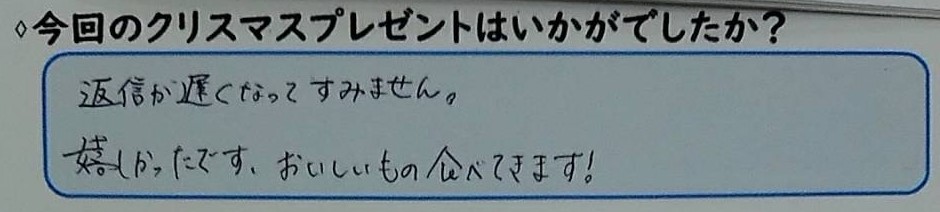 ◇今回のクリスマスプレゼントはいかがでしたか？
返信が遅くなってすみません。
嬉しかったです、おいしいもの食べてきます！